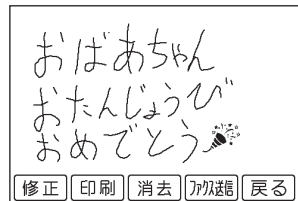 おばあちゃん
おたんじょうび
おめでとう
修正 印刷 消去 ファクス送信 戻る